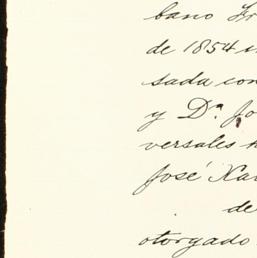 bano Fr
de 1854
sada con
y Dª Jo
versales h
José Xa
de
otorgado